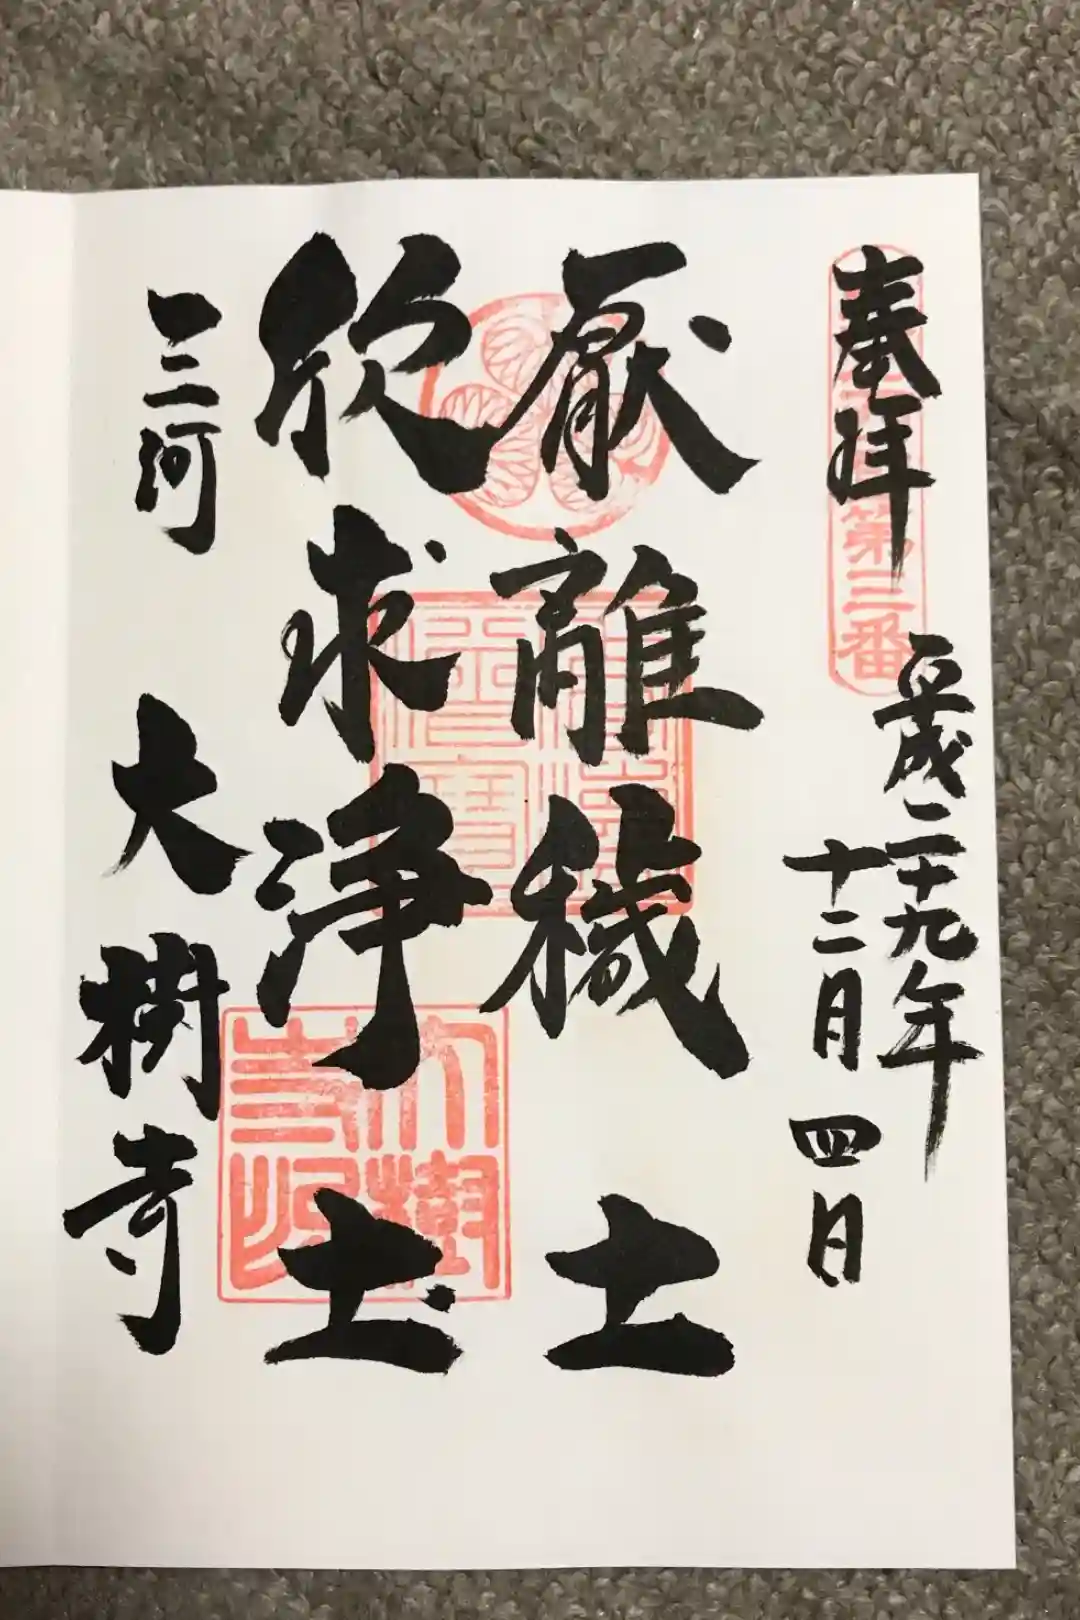 奉拝
第三番
平成二十九年
十二月四日
厭離穢土
欣求浄土
三河
大樹寺